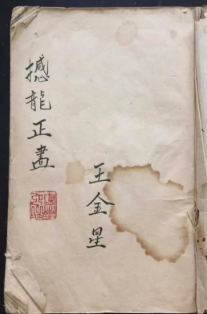 撼龍正畵
王金星